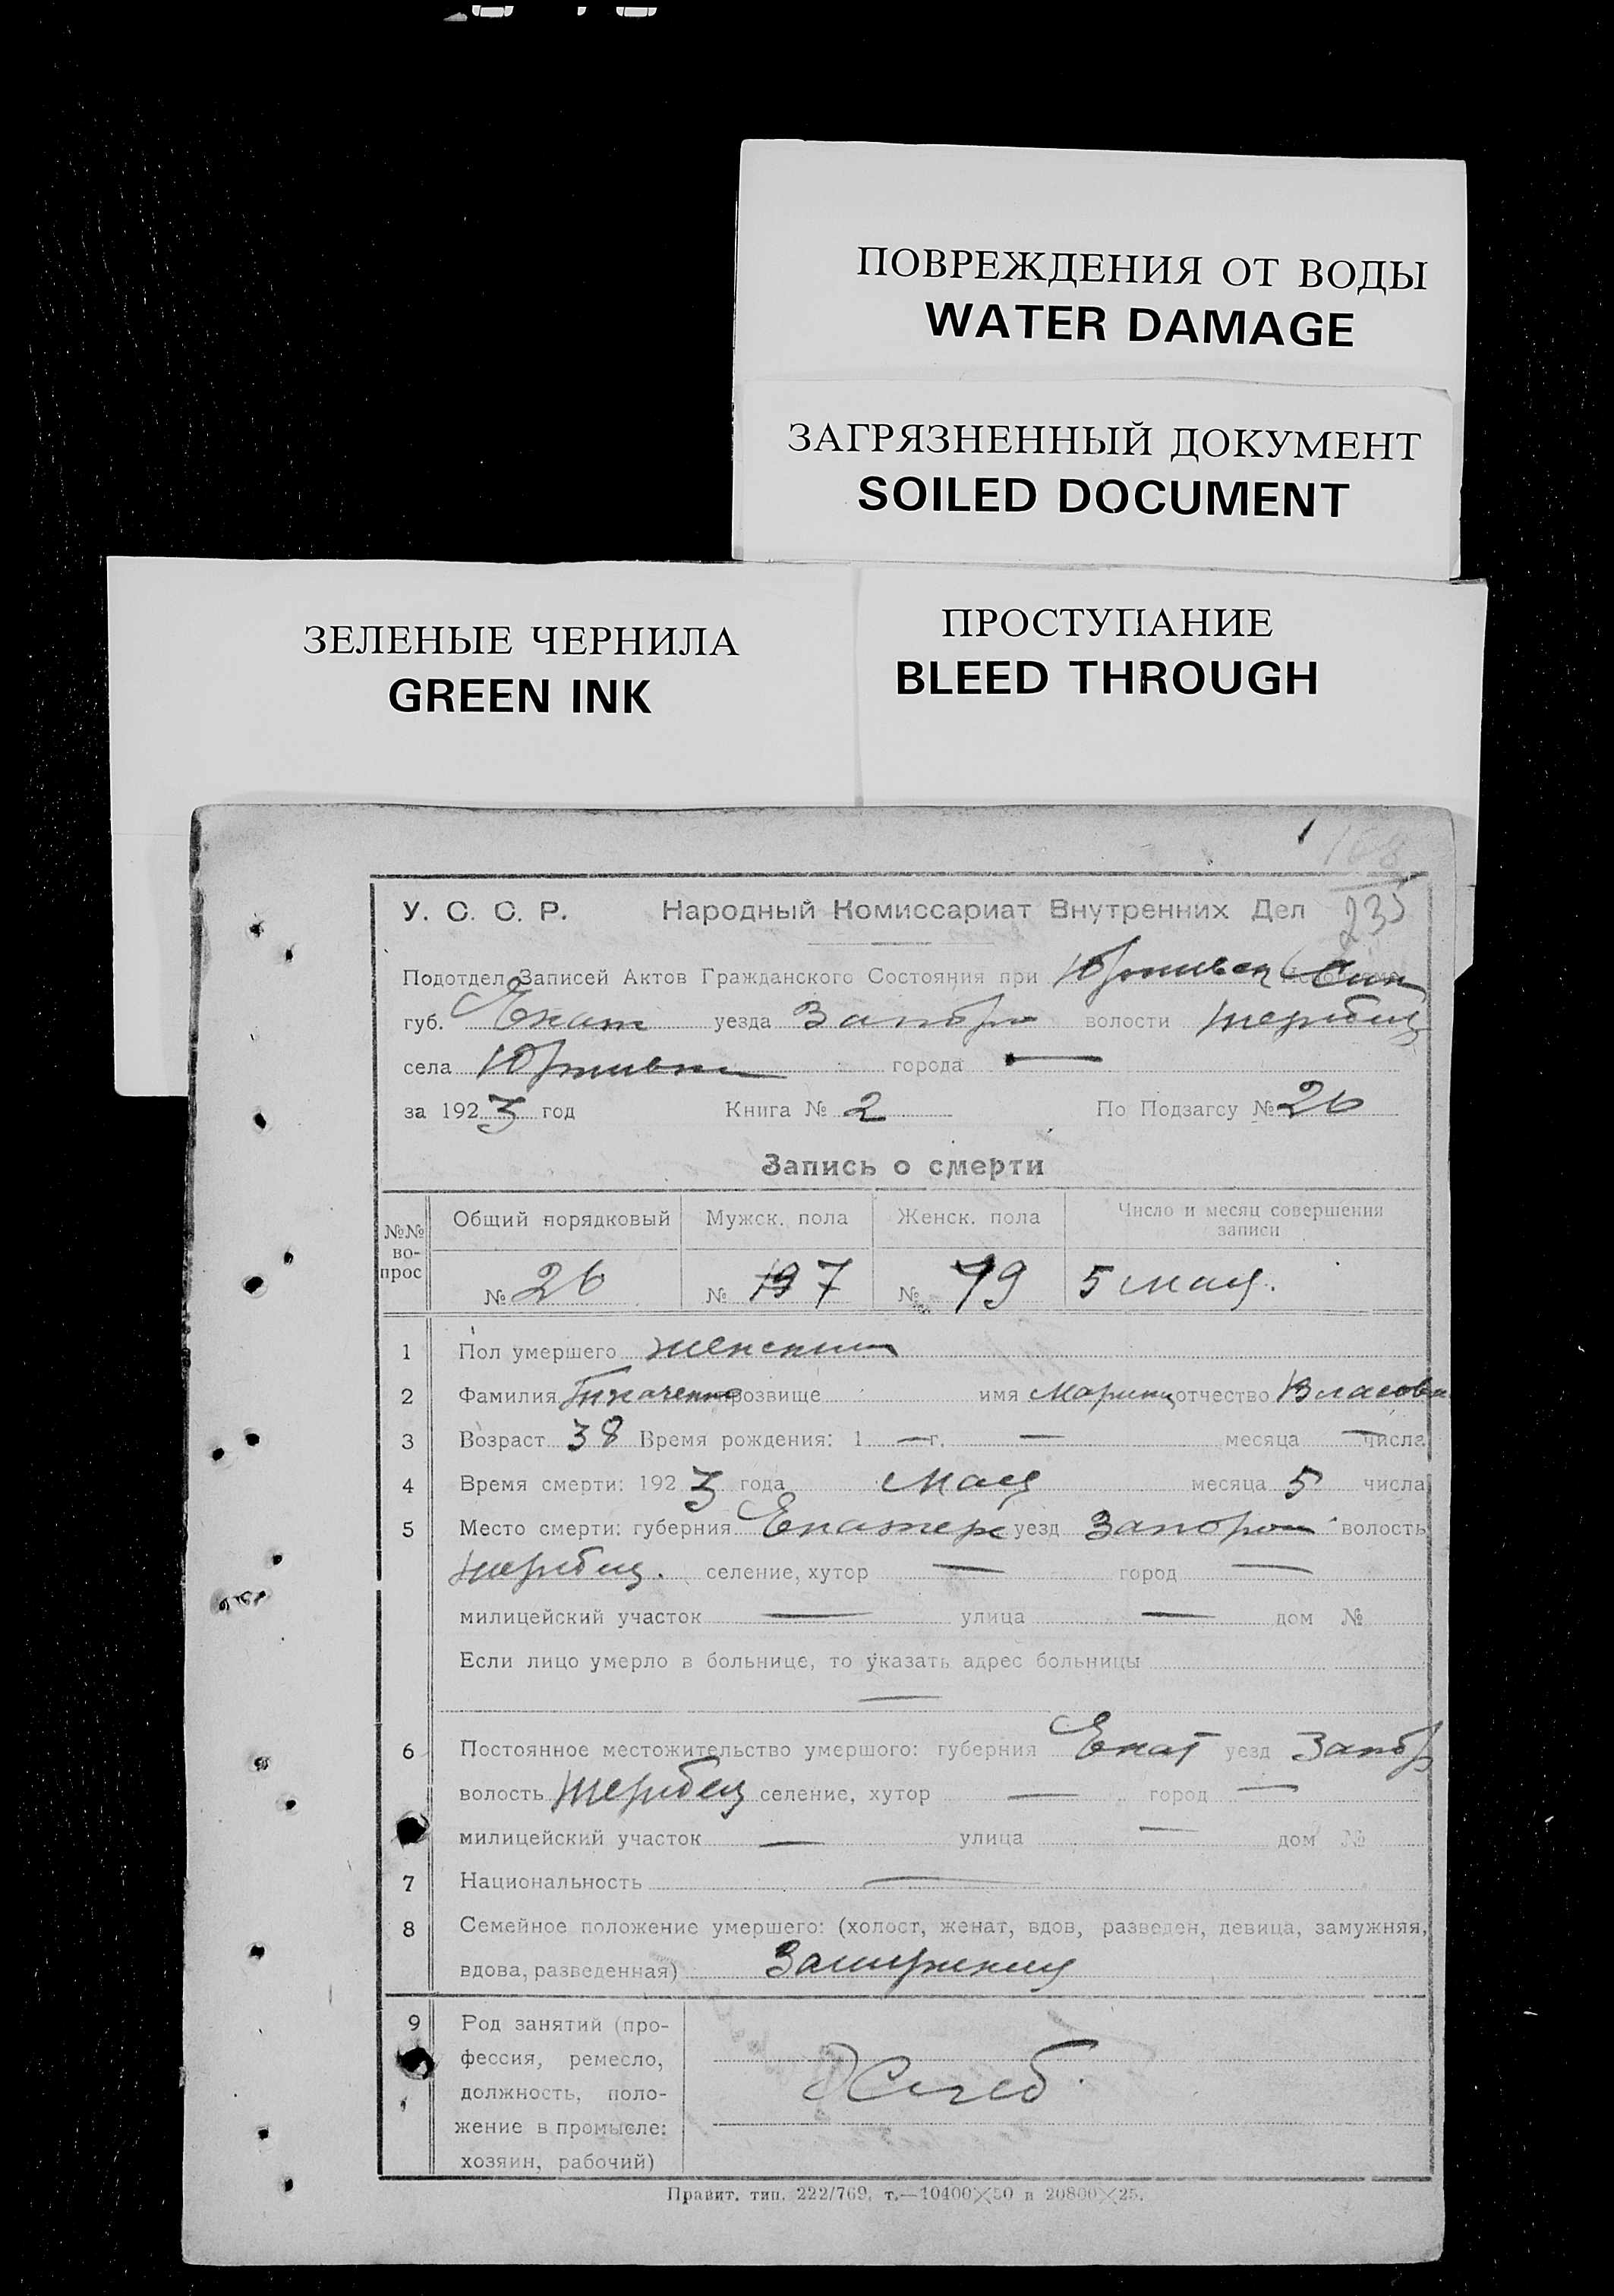 ПОВРЕЖДЕНИЯ ОТ ВОДЫ
WATER DAMAGE
ЗАГРЯЗНЕННЫЙ ДОКУМЕНТ
SOILED DOCUMENT
ЗЕЛЕНЫЕ ЧЕРНИЛА
GREEN INK
ПРОСТУПАНИЕ
BLEED THROUGH
168
235
У. С. С. Р. Народный Комиссариат Внутренних Дел
Подотдел Записей Актов Гражданского Состояния при
губ. Екат уезда Запор волости
села города —
за 1923 год Книга № 2 По Подзагсу № 26
Запись о смерти
№№ во-прос Общий порядковый Мужск. пола Женск. пола Число и месяц совершения записи
№ 26 № 7 № 19 5 мая.
1 Пол умершего женский
2 Фамилия Ткаченко прозвище имя Марина отчество Власовн
3 Возраст 38 Время рождения: 1 — г. — месяца — числа
4 Время смерти: 1923 года мая месяца 5 числа
5 Место смерти: губерния Екатер уезд Запорож волость
селение, хутор — город —
милицейский участок — улица — дом №
Если лицо умерло в больнице, то указать адрес больницы
—
6 Постоянное местожительство умершого: губерния Екат уезд Запор
волость селение, хутор — город —
милицейский участок — улица — дом №
7 Национальность —
8 Семейное положение умершего: (холост, женат, вдов, разведен, девица, замужняя,
вдова, разведенная) Замужняя
9 Род занятий (про-
фессия, ремесло,
должность, поло-
жение в промысле:
хозяин, рабочий)
Правит. тип. 222/769, т.—10400×50 и 20800×25.